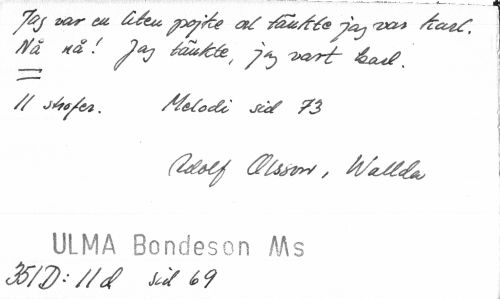 Jag var en liten pojke och tänkte jag var karl.
Nå nå! Jag tänkte, jag vart karl.
11 strofer. Melodi sid 73
Adolf Olsson, Wallda
ULMA Bondeson Ms
351D: 11d sid 69